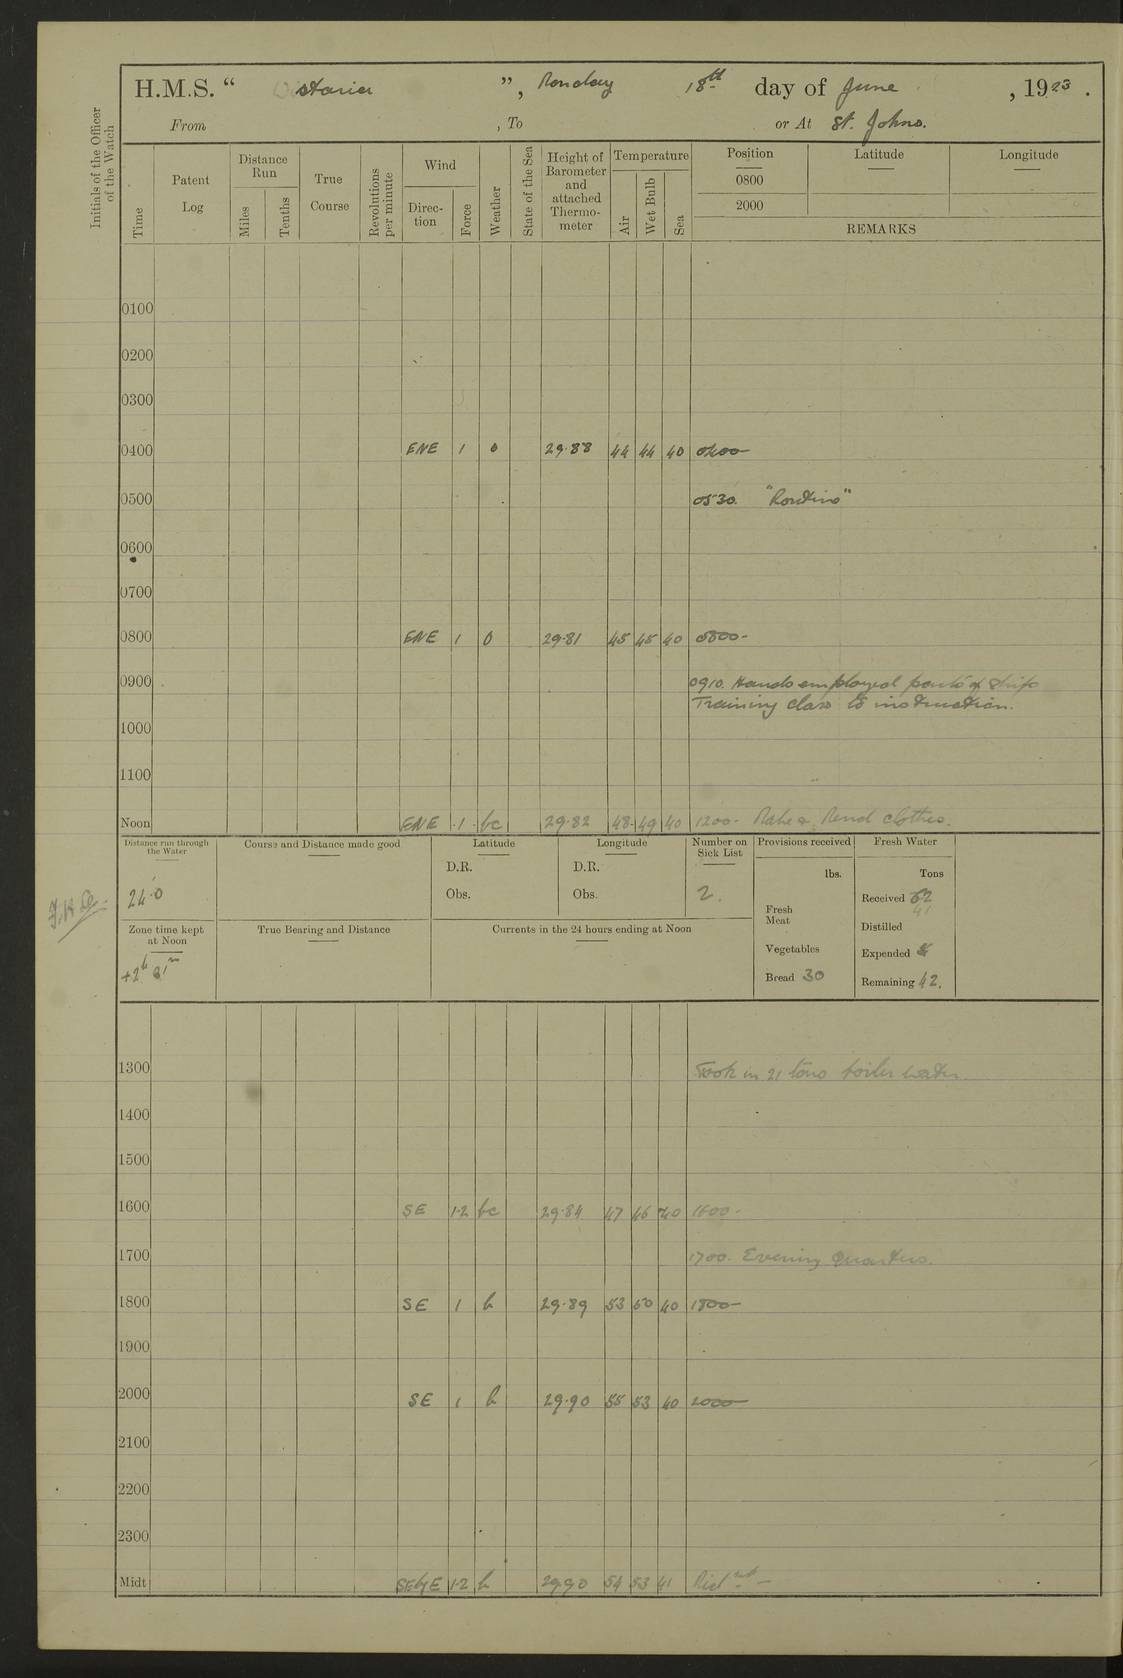 H.M.S. “ Wistaria ”, Monday 18th day of June, 1923.
From , To or At St. Johns.
Initials of the Officer of the Watch
Time
Patent Log
Distance Run
Miles
Tenths
True Course
Revolutions per minute
Wind
Direc-tion
Force
Weather
State of the Sea
Height of Barometer and attached Thermo-meter
Temperature
Air
Wet Bulb
Sea
Position
0800
2000
Latitude
Longitude
REMARKS
0100
0200
0300
0400 ENE 1 o 29.88 44 44 40 0400
0500 0530. "Routine"
0600
0700
0800 ENE 1 o 29.81 45 45 40 0800-
0900 0910. Hands employed parts of ship
Training class to instruction.
1000
1100
Noon ENE 1 bc 29.82 48 49 40 1200- Make & Mend clothes.
Distance run through the Water
24.0
Course and Distance made good
Latitude
D.R.
Obs.
Longitude
D.R.
Obs.
Number on Sick List
2.
Provisions received
lbs.
Fresh Meat
Vegetables
Bread 30
Fresh Water
Tons
Received 62
41
Distilled
Expended
Remaining 42.
Zone time kept at Noon
+2h 31m
True Bearing and Distance
Currents in the 24 hours ending at Noon
1300 Took in 21 tons boiler water
1400
1500
1600 SE 1-2 bc 29.84 47 46 40 1600-
1700 1700. Evening Quarters.
1800 SE 1 b 29.89 53 50 40 1800-
1900
2000 SE 1 b 29.90 55 53 40 2000-
2100
2200
2300
Midt SEbyE 1-2 b 29.90 54 53 41 Midnt-